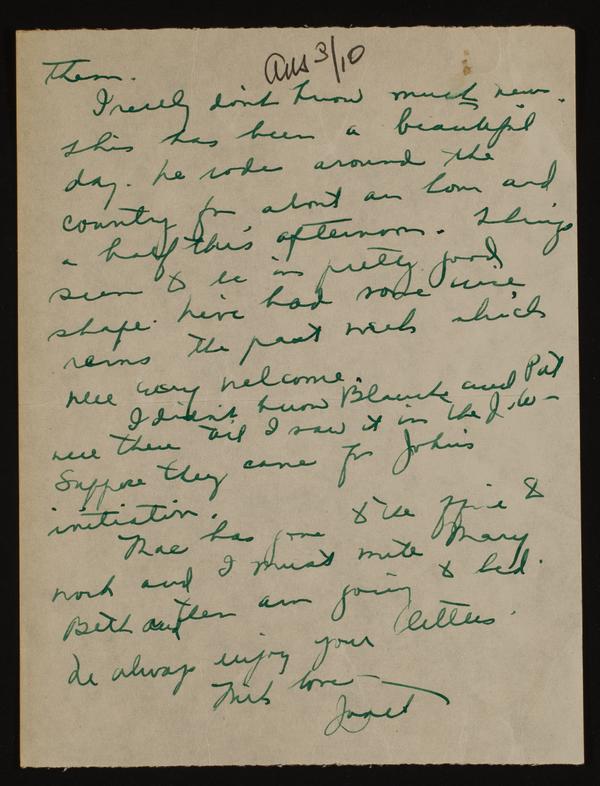 Ans 3/10
them.
I really don't know much news.
This has been a beautiful
day. We rode around the
country for about an hour and
a half this afternoon. Things
seem to be in pretty good
shape. We've had some nice
rains the past week which
were very welcome.
I didn't know Blanche and Pat
were there 'til I saw it in the J-W-
Suppose they came for John's
initiation.
Mac has gone to the office to
work and I must write Mary
Beth and then am going to bed.
We always enjoy your letters.
Much love
Janet